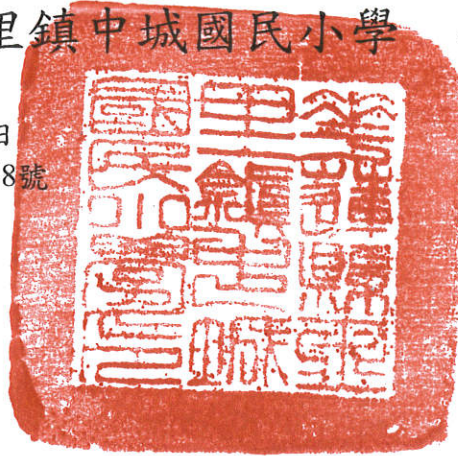 里鎮中城國民小學
日
8號
花蓮縣玉
里鎮中城
國民小學印